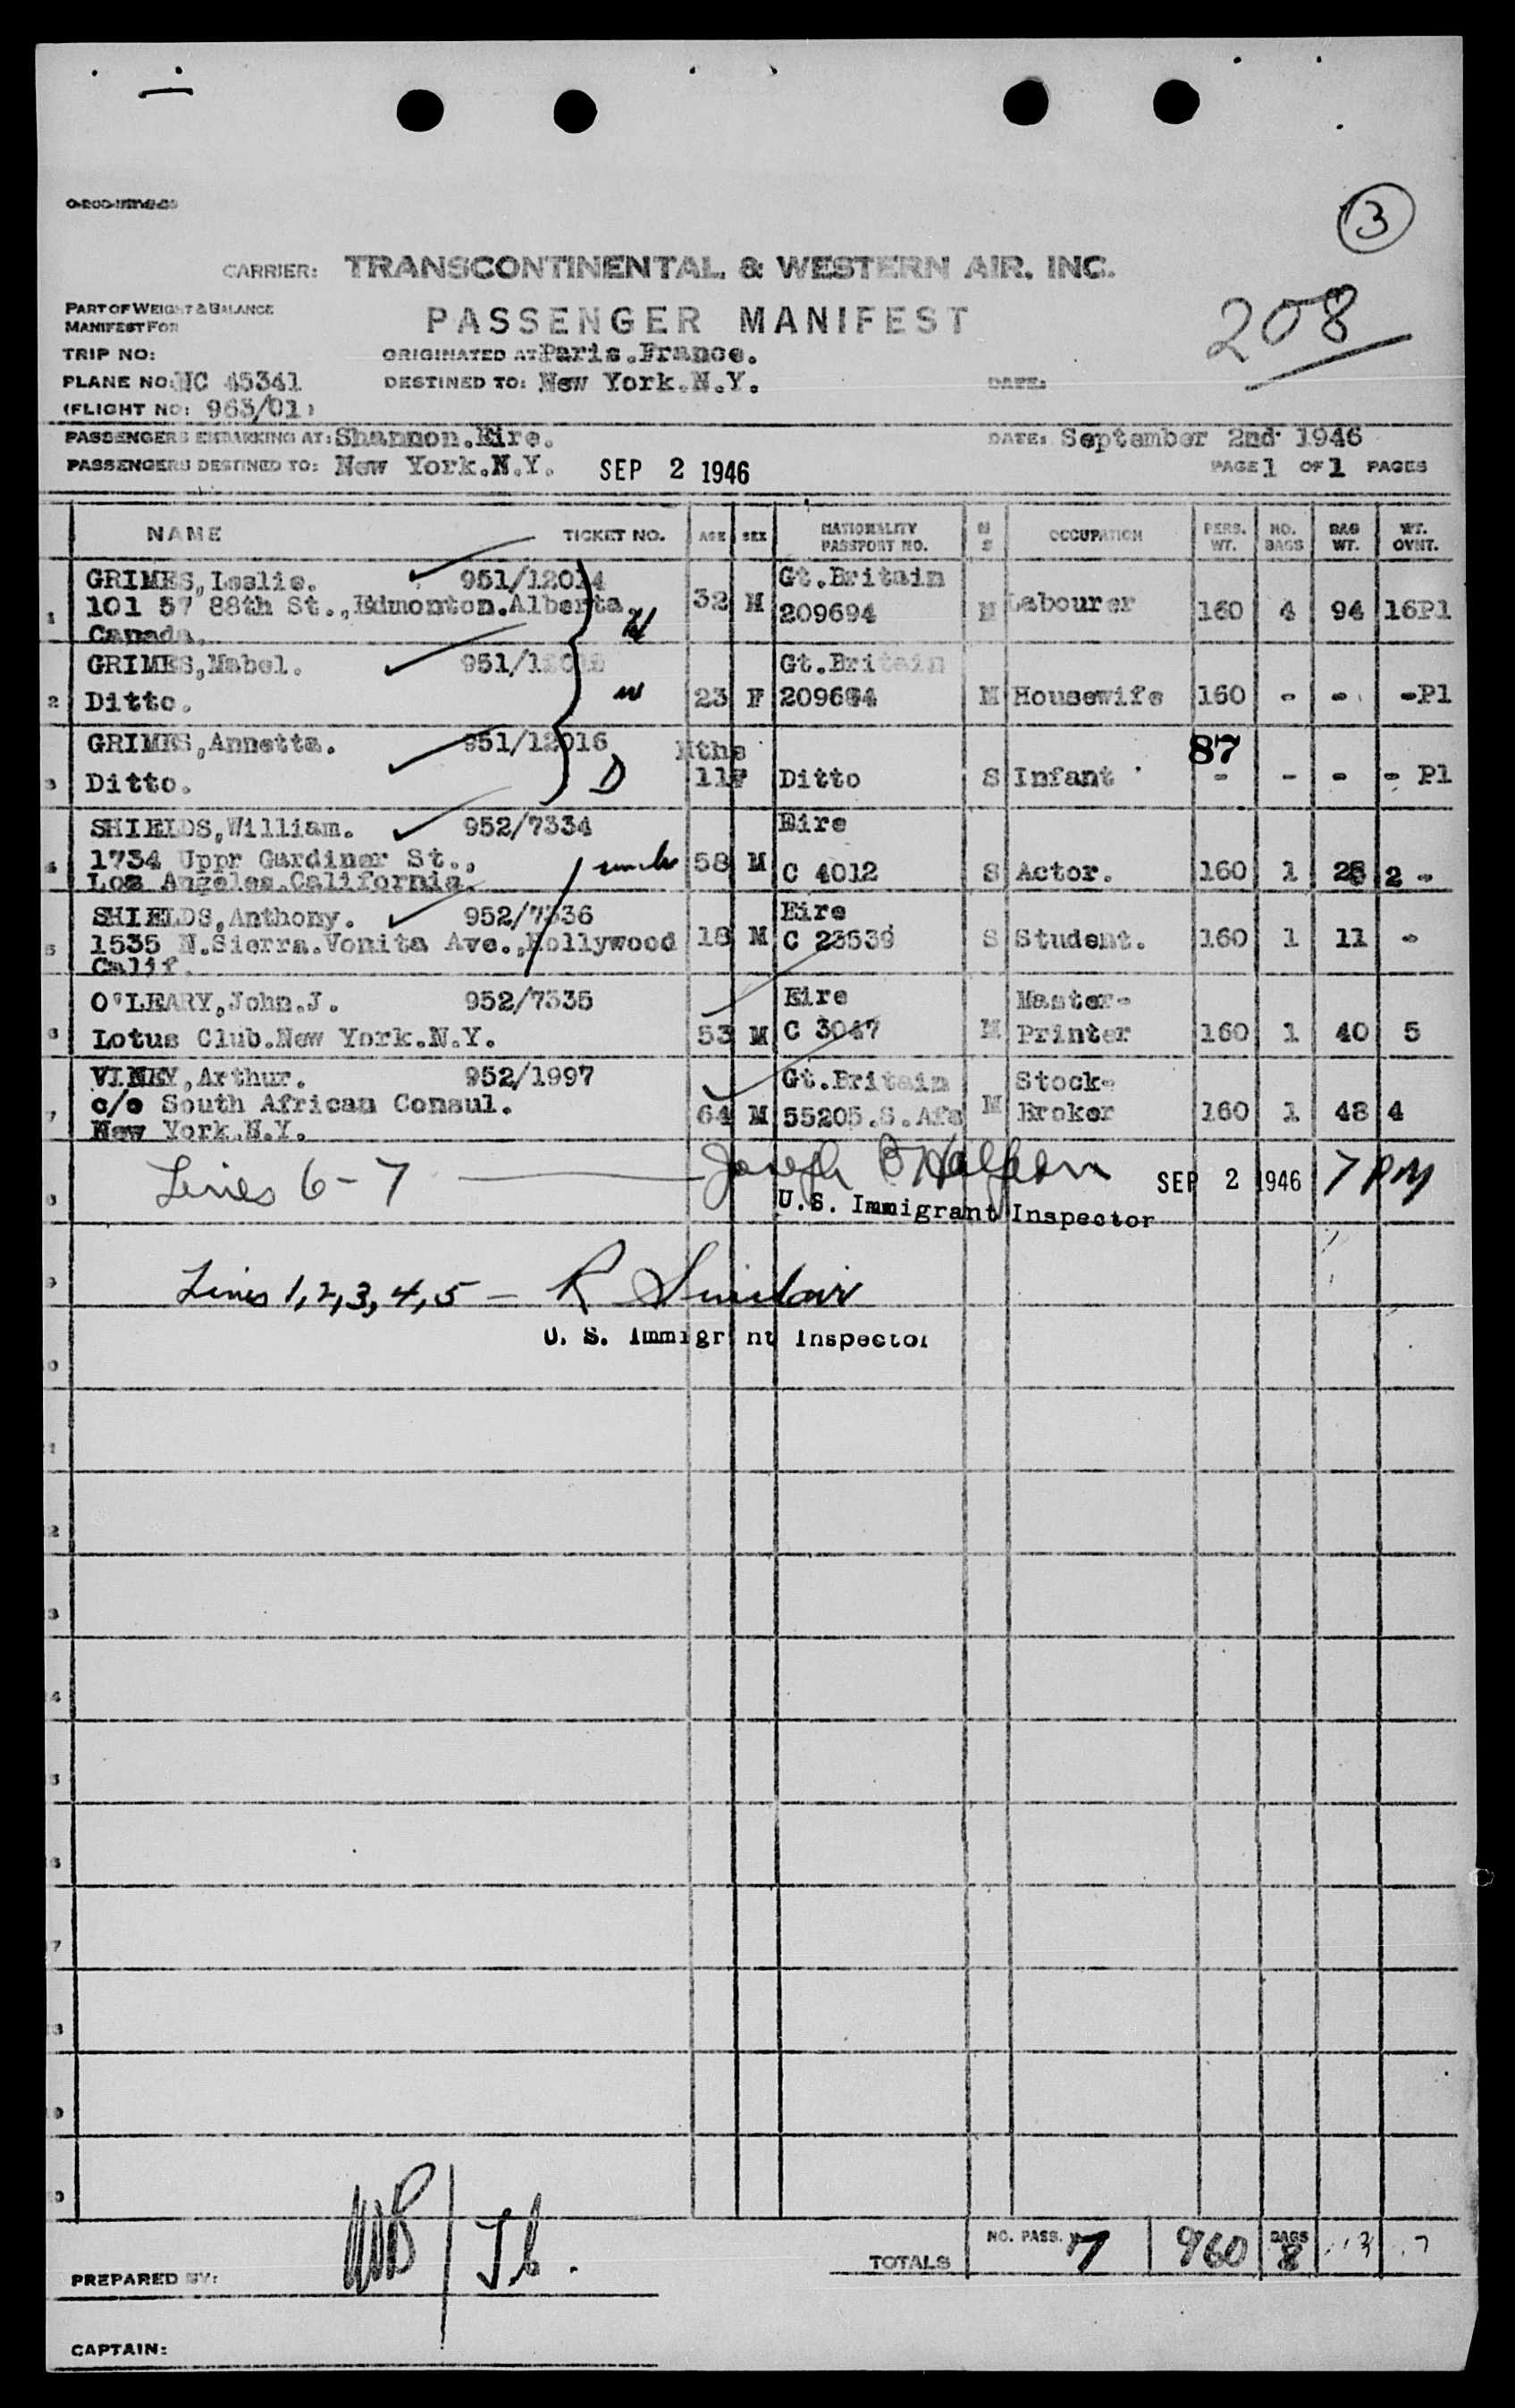 3
CARRIER: TRANSCONTINENTAL & WESTERN AIR, INC.
PART OF WEIGHT & BALANCE
MANIFEST FOR
PASSENGER MANIFEST
208
TRIP NO: ORIGINATED AT Paris.France.
PLANE NO: NC 45341 DESTINED TO: New York.N.Y. DATE:
(FLIGHT NO: 963/01)
PASSENGERS EMBARKING AT: Shannon.Eire. DATE: September 2nd 1946
PASSENGERS DESTINED TO: New York.N.Y. SEP 2 1946 PAGE 1 OF 1 PAGES
NAME TICKET NO. AGE SEX NATIONALITY PASSPORT NO. M S OCCUPATION PERS. WT. NO. BAGS BAG WT. WT. OVNT.
GRIMES, Leslie. 951/12014 Gt.Britain
1 101 57 88th St., Edmonton.Alberta. 32 M 209694 M Labourer 160 4 94 16Pl
Canada.
GRIMES, Mabel. 951/ Gt.Britain
2 Ditto. 23 F M Housewife 160 - - -Pl
GRIMES, Annetta. 951/12016 Mths 87
3 Ditto. D 11 F Ditto S Infant - - - - Pl
SHIELDS, William. 952/7334 Eire
4 1734 Uppr Gardiner St., 58 M C 4012 S Actor. 160 1 2 -
Los Angeles.California.
SHIELDS, Anthony. 952/7336 Eire
5 1535 N.Sierra.Vonita Ave., Hollywood 18 M C 23539 S Student. 160 1 11 -
Calif.
O'LEARY, John.J. 952/7335 Eire Master-
6 Lotus Club.New York.N.Y. 53 M C 3047 M Printer 160 1 40 5
VINEY, Arthur. 952/1997 Gt.Britain Stock-
7 c/o South African Consul. 64 M 55205.S.Afs M Broker 160 1 48 4
New York.N.Y.
Lines 6-7 Joseph B Halpern SEP 2 1946 7 PM
U.S. Immigrant Inspector
Lines 1,2,3,4,5 - R Sinclair
U. S. Immigrant Inspector
TOTALS NO. PASS. 7 960 BAGS 8
PREPARED BY:
CAPTAIN: